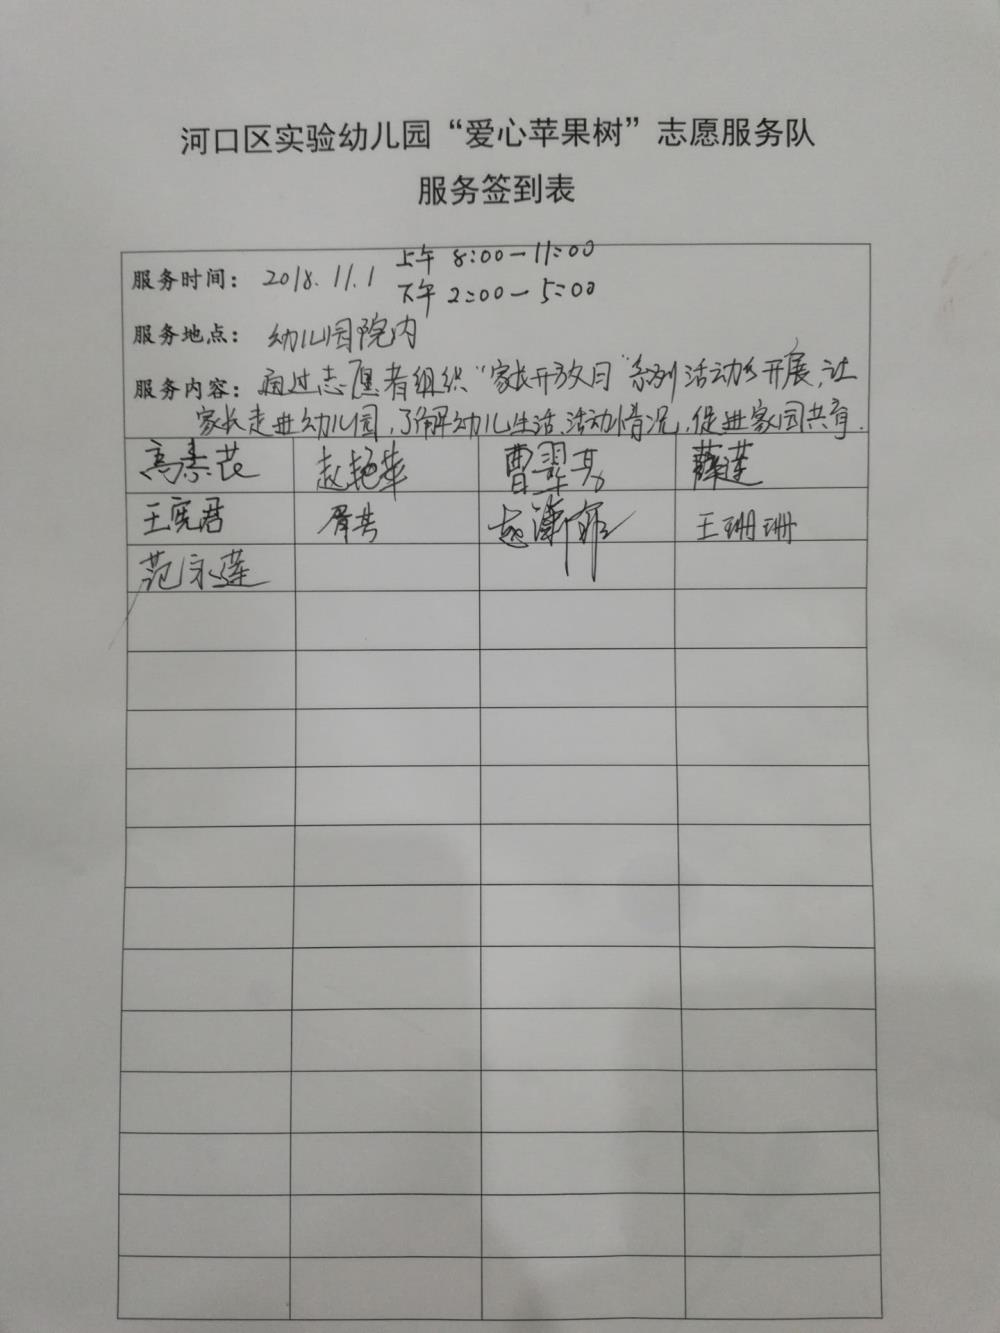 河口区实验幼儿园“爱心苹果树”志愿服务队
服务签到表
服务时间： 2018.11.1 上午 8:00—11:00
下午 2:00—5:00
服务地点： 幼儿园院内
服务内容： 通过志愿者组织“家长开放日”系列活动的开展，让
家长走进幼儿园，了解幼儿生活、活动情况，促进家园共育.
高素芸 赵艳华 曹翠芳 薛莲
王宪君 胥芸 王珊珊
范永莲